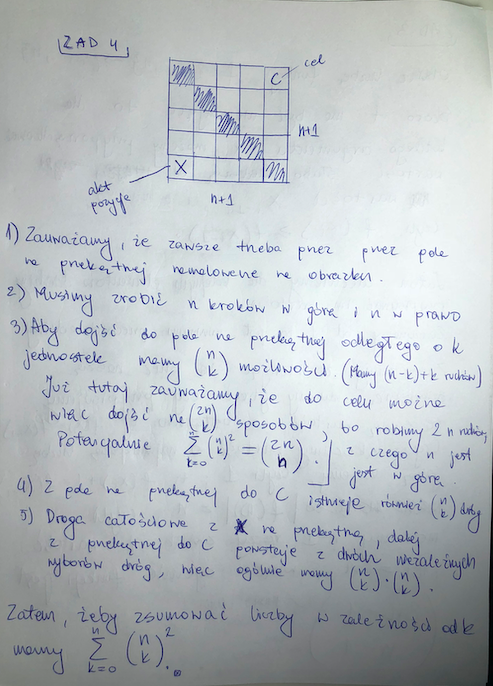 ZAD 4
C
cel
n+1
X
akt pozycja
n+1
1) Zauważamy, że zawsze trzeba przez przez pole
na przekątnej namalowane na obrazku.
2) Musimy zrobić n kroków w górę i n w prawo
3) Aby dojść do pola na przekątnej odległego o k
jednostek mamy (n k) możliwości. (Mamy (n-k)+k ruchów)
Już tutaj zauważamy, że do celu można
więc dojść na (2n k) sposobów, bo robimy 2n ruchów,
Potencjalnie ∑_{k=0}^{n} (n k)² = (2n n). z czego n jest
jest w górę.
4) Z pola na przekątnej do C istnieje również (n k) dróg
5) Droga całościowa z X na przekątną, dalej
z przekątnej do C powstaje z dwóch niezależnych
wyborów dróg, więc ogólnie mamy (n k)·(n k).
Zatem, żeby zsumować liczby w zależności od k
mamy ∑_{k=0}^{n} (n k)².